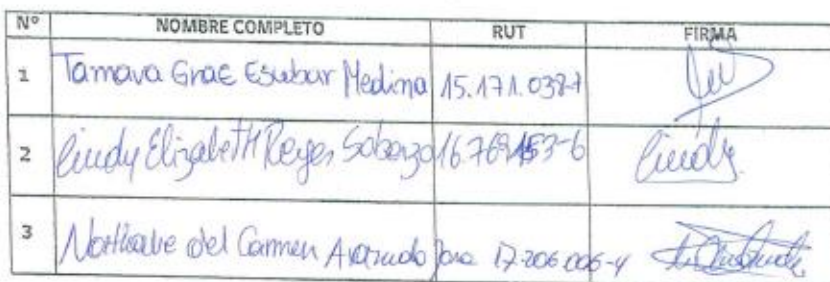 Nº NOMBRE COMPLETO RUT FIRMA
1 Tamara Grae Escobar Medina 15.171.038-7
2 Cindy Elizabeth Reyes Sobarzo 16.769.153-6 Cindy
3 Nathalie del Carmen Aranudo Jara 17-206.006-4